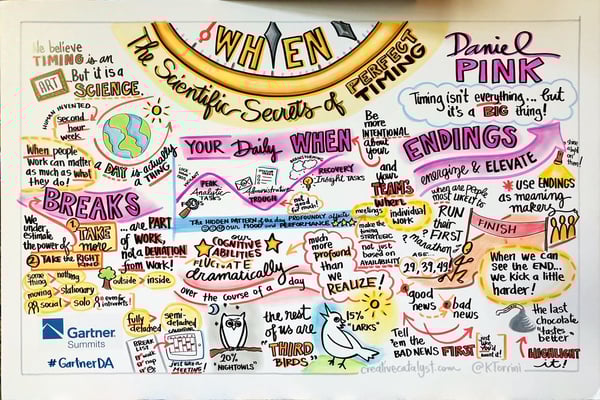 WHEN
The Scientific Secrets of
PERFECT
TIMING
Daniel
PINK
Timing isn't everything... but
it's a BIG thing!
We believe
TIMING is an
ART
But it is a
SCIENCE.
HUMAN INVENTED
second
hour
week
a DAY is actually
a THING
When people
work can matter
as much as what
they do!
BREAKS
We
under-
estimate
the power of
1 TAKE
more
2 TAKE the RIGHT
KIND
... are PART
of WORK,
not a DEVIATION
from Work!
some
thing > nothing
moving > stationary
social > solo
even for
introverts
outside > inside
Gartner
Summits
#GartnerDA
fully
detached
semi-
detached
BREAK
LIST
walk
nap
Just like a
MEETING!
YOUR Daily WHEN
PEAK
Analytic
TASKS
TROUGH
Administrative
RECOVERY
Insight TASKS
The HIDDEN PATTERN of the day PROFOUNDLY affects
OUR MOOD and PERFORMANCE
OUR
COGNITIVE
ABILITIES
FLUCTUATE
dramatically
over the course of a day
much
more
profound
than
we
REALIZE!
20%
"NIGHTOWLS"
the rest
of us are
"THIRD
BIRDS"
15%
"LARKS"
Be
more
INTENTIONAL
about your
and your
TEAMS
when
meetings
individual
work
make the
timing
STRATEGIC
not just
BASED on
AVAILABILITY
ENDINGS
energize & ELEVATE
when are people
most likely to
RUN
their
FIRST
marathon?
AGE...
29, 39, 49!
USE ENDINGS
as meaning
makers
FINISH
When we can
see the END...
we kick a little
harder!
good
news
bad
news
Tell 'em
the
BAD NEWS FIRST
the last
chocolate
"tastes
better"
HIGHLIGHT
it!
creativecatalyst.com
@KTorrini